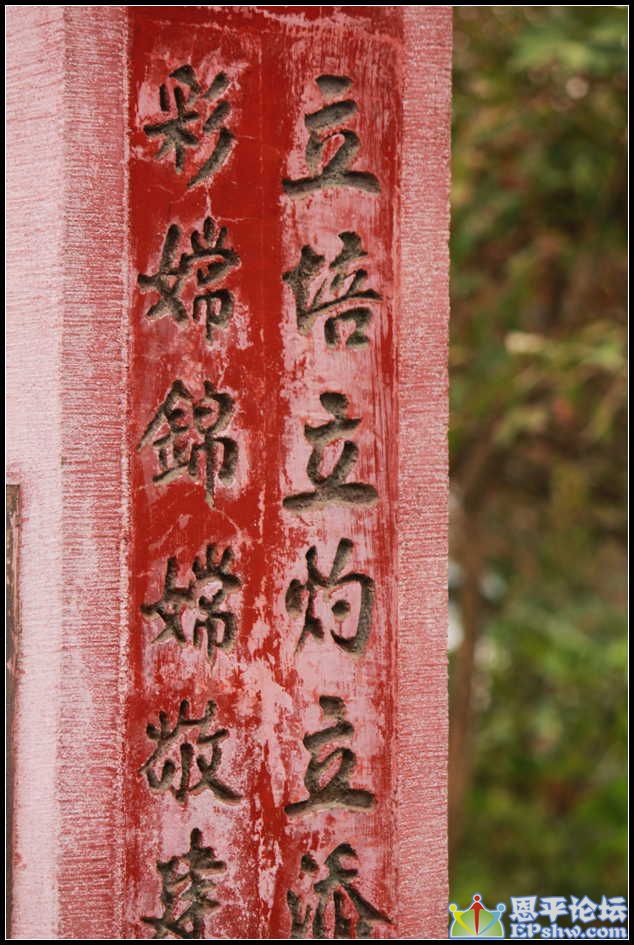 立培立灼立添
彩嫦錦嫦敬
恩平论坛
EPshw.com